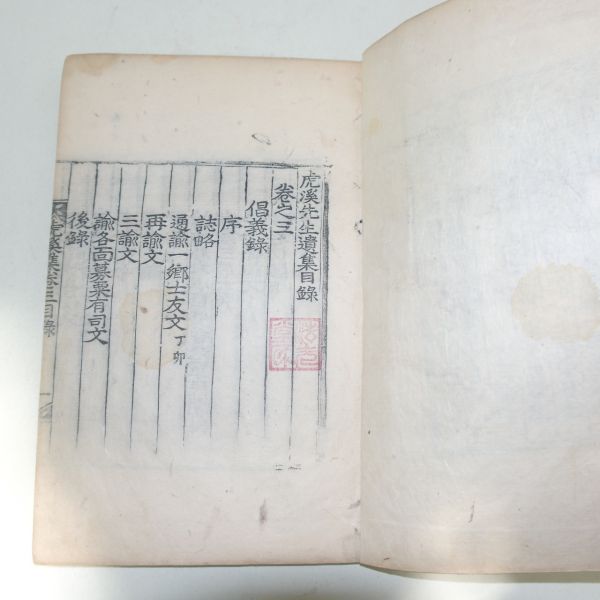 虎溪先生遺集目錄
卷之三
倡義錄
序
誌略
通諭一鄉士友文 丁卯
再諭文
三諭文
諭各面募粟有司文
後錄
虎溪集卷三目錄